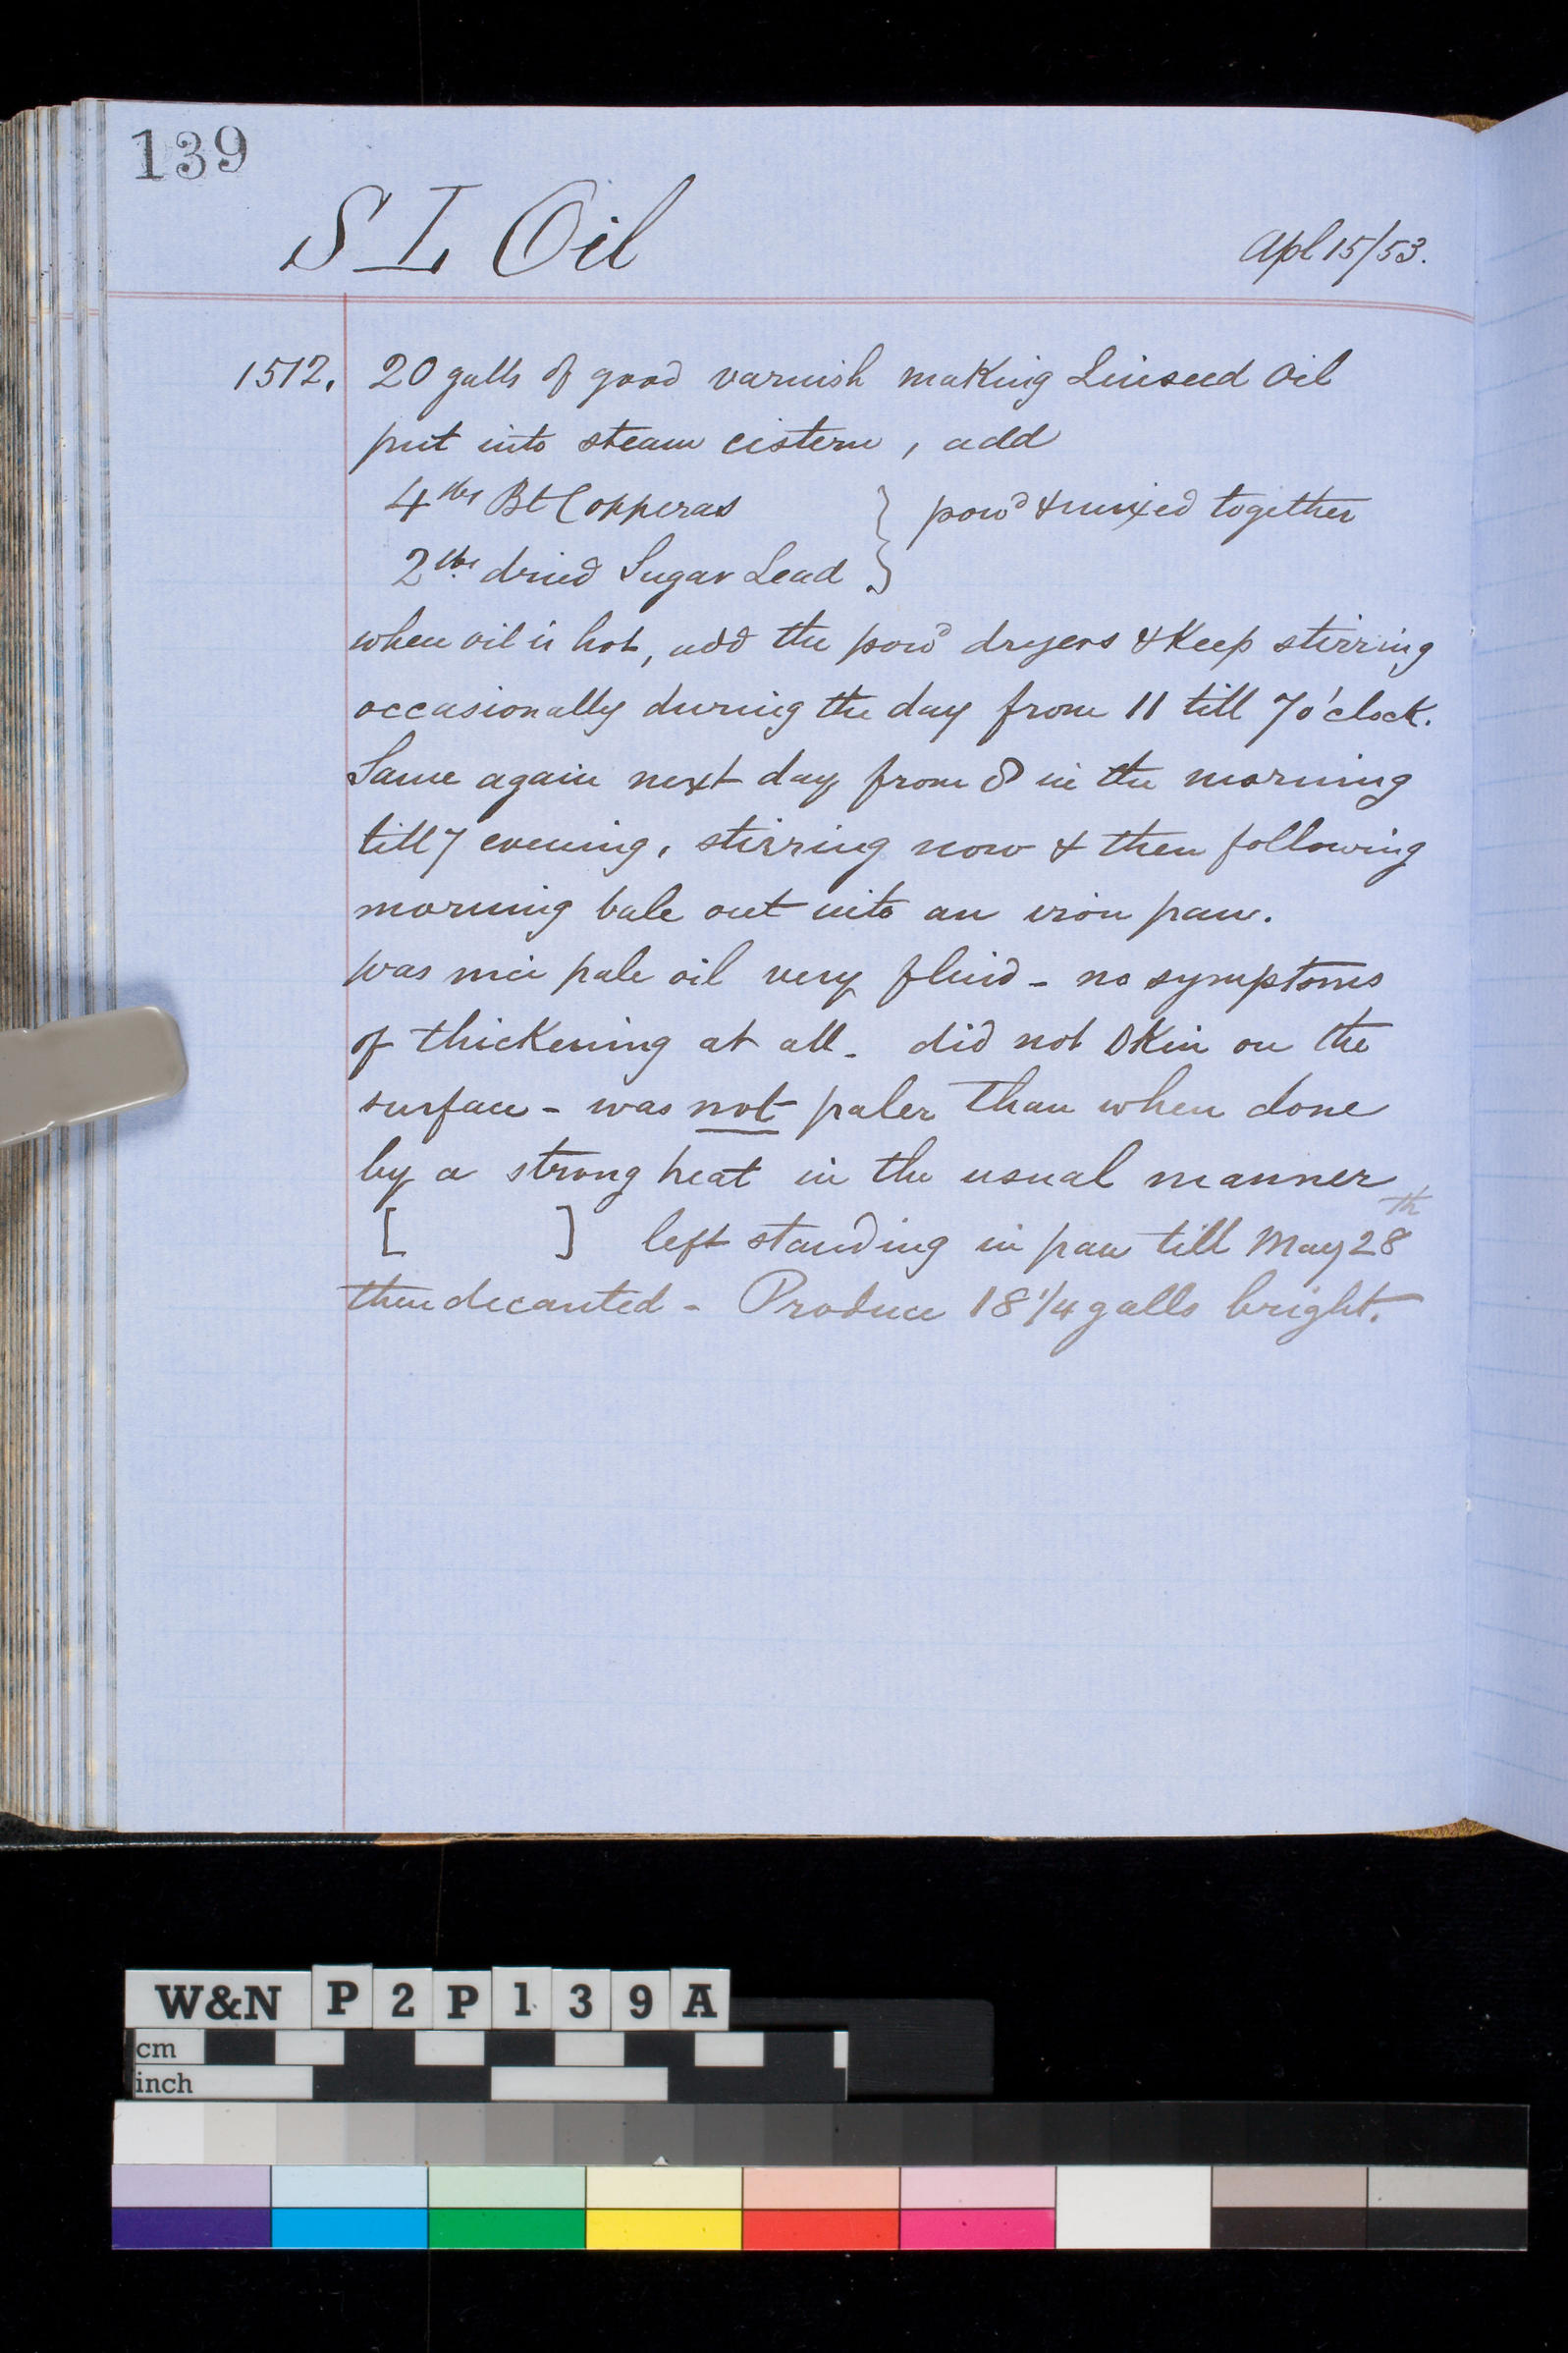 139
S L Oil
Apl 15/53.
1512. 20 galls of good varnish making Linseed Oil
put into steam cistern, add
4 lbs Bt Copperas } powd & mixed together
2 lbs dried Sugar Lead }
when oil is hot, add the powd dryers & Keep stirring
occasionally during the day from 11 till 7 o'clock.
Same again next day from 8 in the morning
till 7 evening, stirring now & then following
morning bale out into an iron pan.
was nice pale oil very fluid - no symptoms
of thickening at all - did not skin on the
surface - was not paler than when done
by a strong heat in the usual manner
[ ] left standing in pan till May 28th
then decanted - Produce 18 1/4 galls bright.
W&N P2P139A
cm
inch